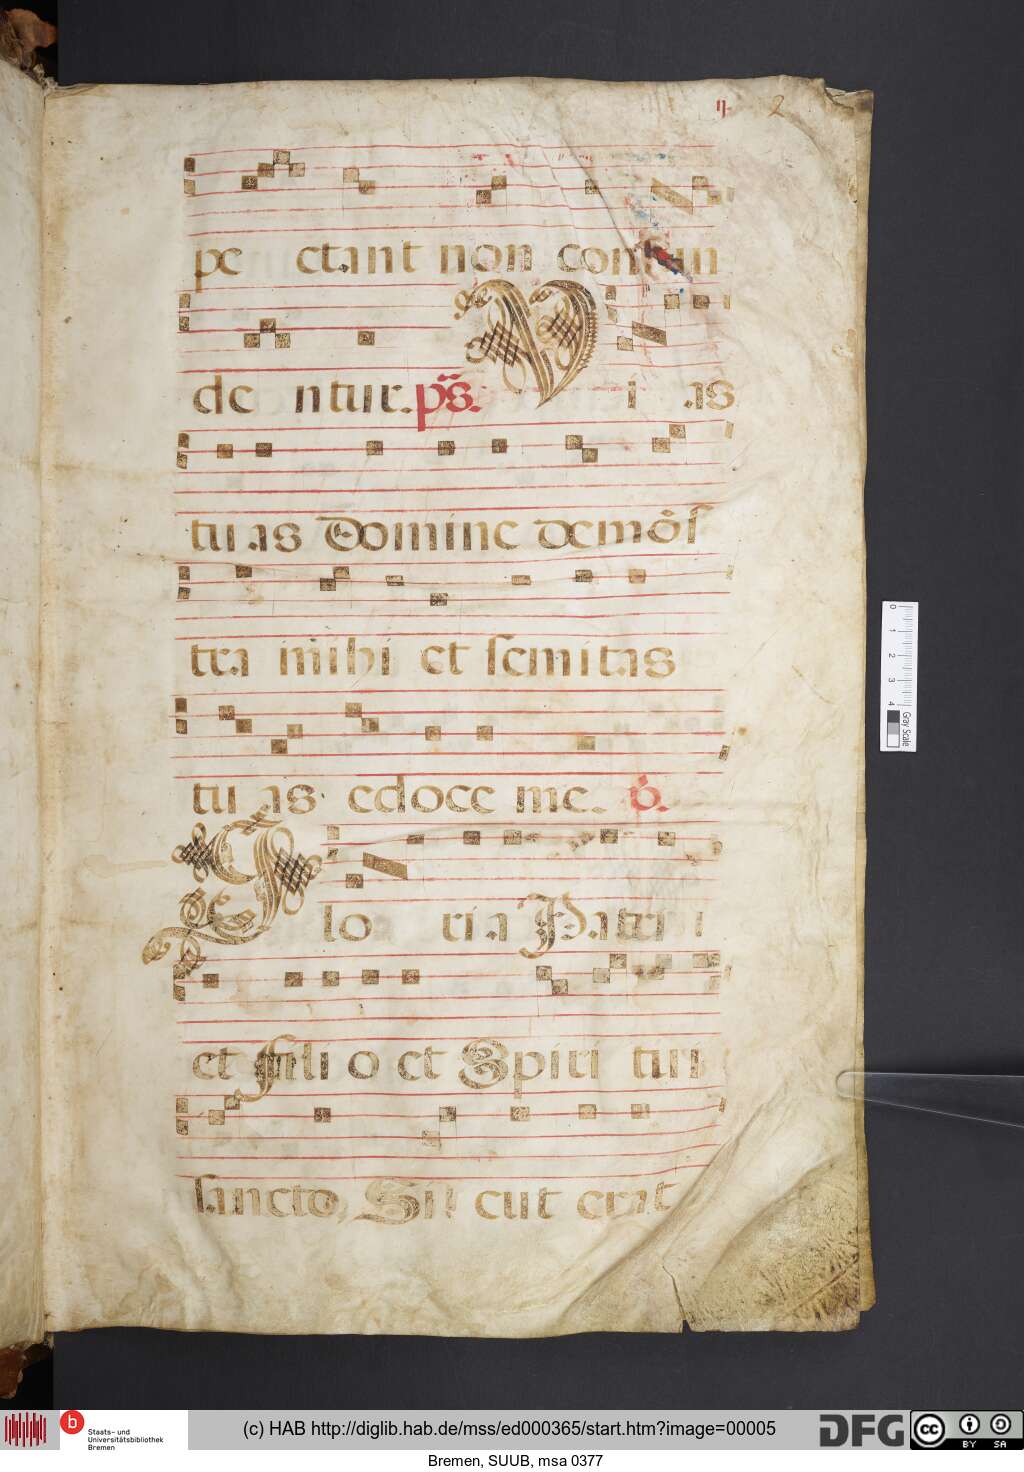 ij. 2
pe ctant non confun
de ntur. ps. Vi as
tuas Domine demõs
tra mihi et semitas
tuas edoce me. v̇.
Glo ria Patri
et Fili o et Spiri tui
sancto, Si cut erat
0 1 2 3 4 Gray Scale
b Staats- und
Universitätsbibliothek
Bremen
(c) HAB http://diglib.hab.de/mss/ed000365/start.htm?image=00005
DFG
cc BY SA
Bremen, SUUB, msa 0377